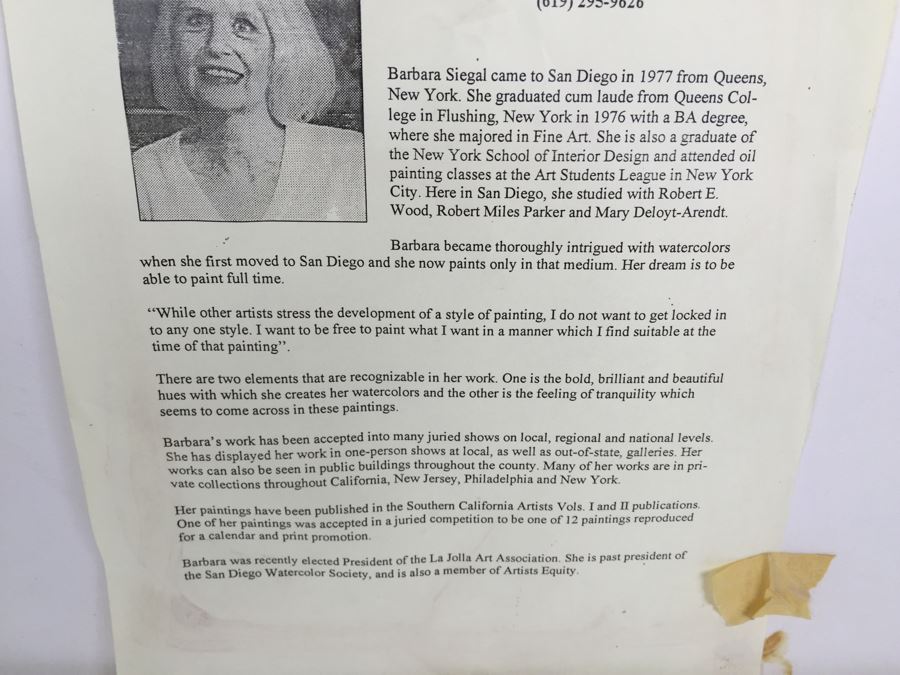 (619) 295-9626
Barbara Siegal came to San Diego in 1977 from Queens,
New York. She graduated cum laude from Queens Col-
lege in Flushing, New York in 1976 with a BA degree,
where she majored in Fine Art. She is also a graduate of
the New York School of Interior Design and attended oil
painting classes at the Art Students League in New York
City. Here in San Diego, she studied with Robert E.
Wood, Robert Miles Parker and Mary Deloyt-Arendt.
Barbara became thoroughly intrigued with watercolors
when she first moved to San Diego and she now paints only in that medium. Her dream is to be
able to paint full time.
“While other artists stress the development of a style of painting, I do not want to get locked in
to any one style. I want to be free to paint what I want in a manner which I find suitable at the
time of that painting”.
There are two elements that are recognizable in her work. One is the bold, brilliant and beautiful
hues with which she creates her watercolors and the other is the feeling of tranquility which
seems to come across in these paintings.
Barbara’s work has been accepted into many juried shows on local, regional and national levels.
She has displayed her work in one-person shows at local, as well as out-of-state, galleries. Her
works can also be seen in public buildings throughout the county. Many of her works are in pri-
vate collections throughout California, New Jersey, Philadelphia and New York.
Her paintings have been published in the Southern California Artists Vols. I and II publications.
One of her paintings was accepted in a juried competition to be one of 12 paintings reproduced
for a calendar and print promotion.
Barbara was recently elected President of the La Jolla Art Association. She is past president of
the San Diego Watercolor Society, and is also a member of Artists Equity.